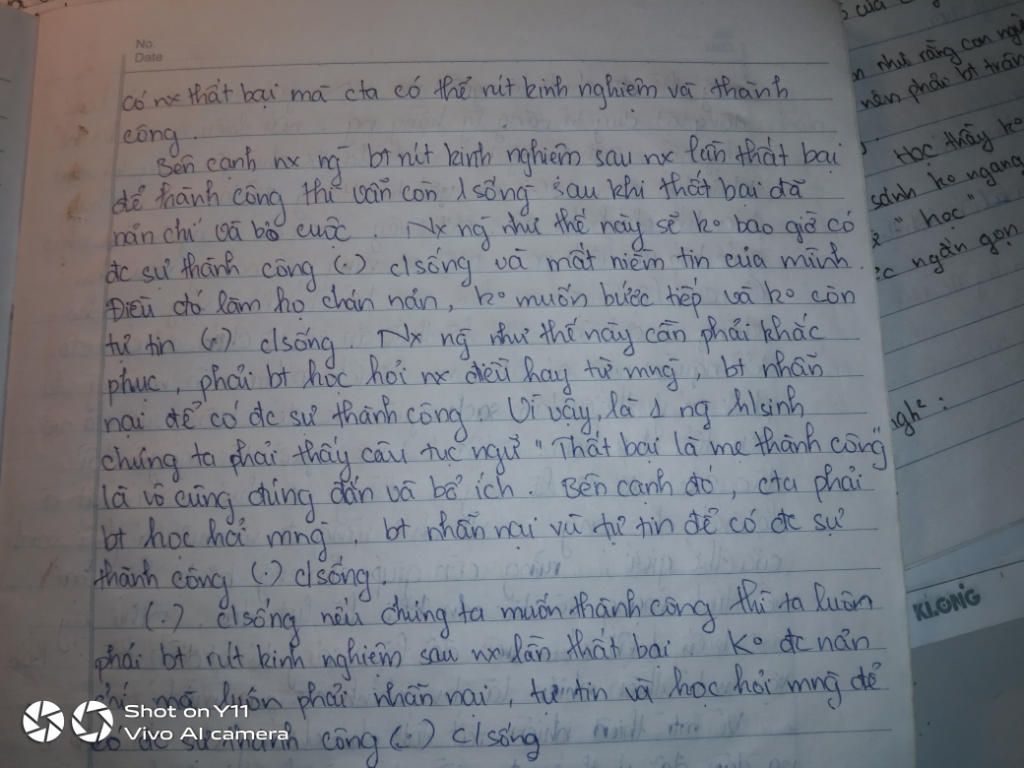 No.
Date
có nx thất bại mà cta có thể rút kinh nghiệm và thành
công.
Bên cạnh nx ng̃ bt rút kinh nghiệm sau nx lần thất bại
để thành công thì vẫn còn 1 sống sau khi thất bại đã
nản chí và bỏ cuộc. Nx ng̃ như thế này sẽ ko bao giờ có
đc sự thành công (.) c/sống và mất niềm tin của mình.
Điều đó làm họ chán nản, ko muốn bước tiếp và ko còn
tự tin (.) c/sống. Nx ng̃ như thế này cần phải khắc
phục, phải bt học hỏi nx điều hay từ mng̃, bt nhẫn
nại để có đc sự thành công. Vì vậy, là 1 ng h/sinh
chúng ta phải thấy câu tục ngữ "Thất bại là mẹ thành công"
là vô cùng đúng đắn và bổ ích. Bên cạnh đó, cta phải
bt học hỏi mng̃, bt nhẫn nại và tự tin để có đc sự
thành công (.) c/sống.
(.) c/sống nếu chúng ta muốn thành công thì ta luôn
phải bt rút kinh nghiệm sau nx lần thất bại. Ko đc nản
chí mà luôn phải nhẫn nại, tự tin và học hỏi mng̃ để
có đc sự thành công (.) c/sống
của
như rằng con ngư
nên phải bt trân
Học thầy ko
sánh ko ngang
" học "
ngắn gọn
KLONG
Shot on Y11
Vivo AI camera